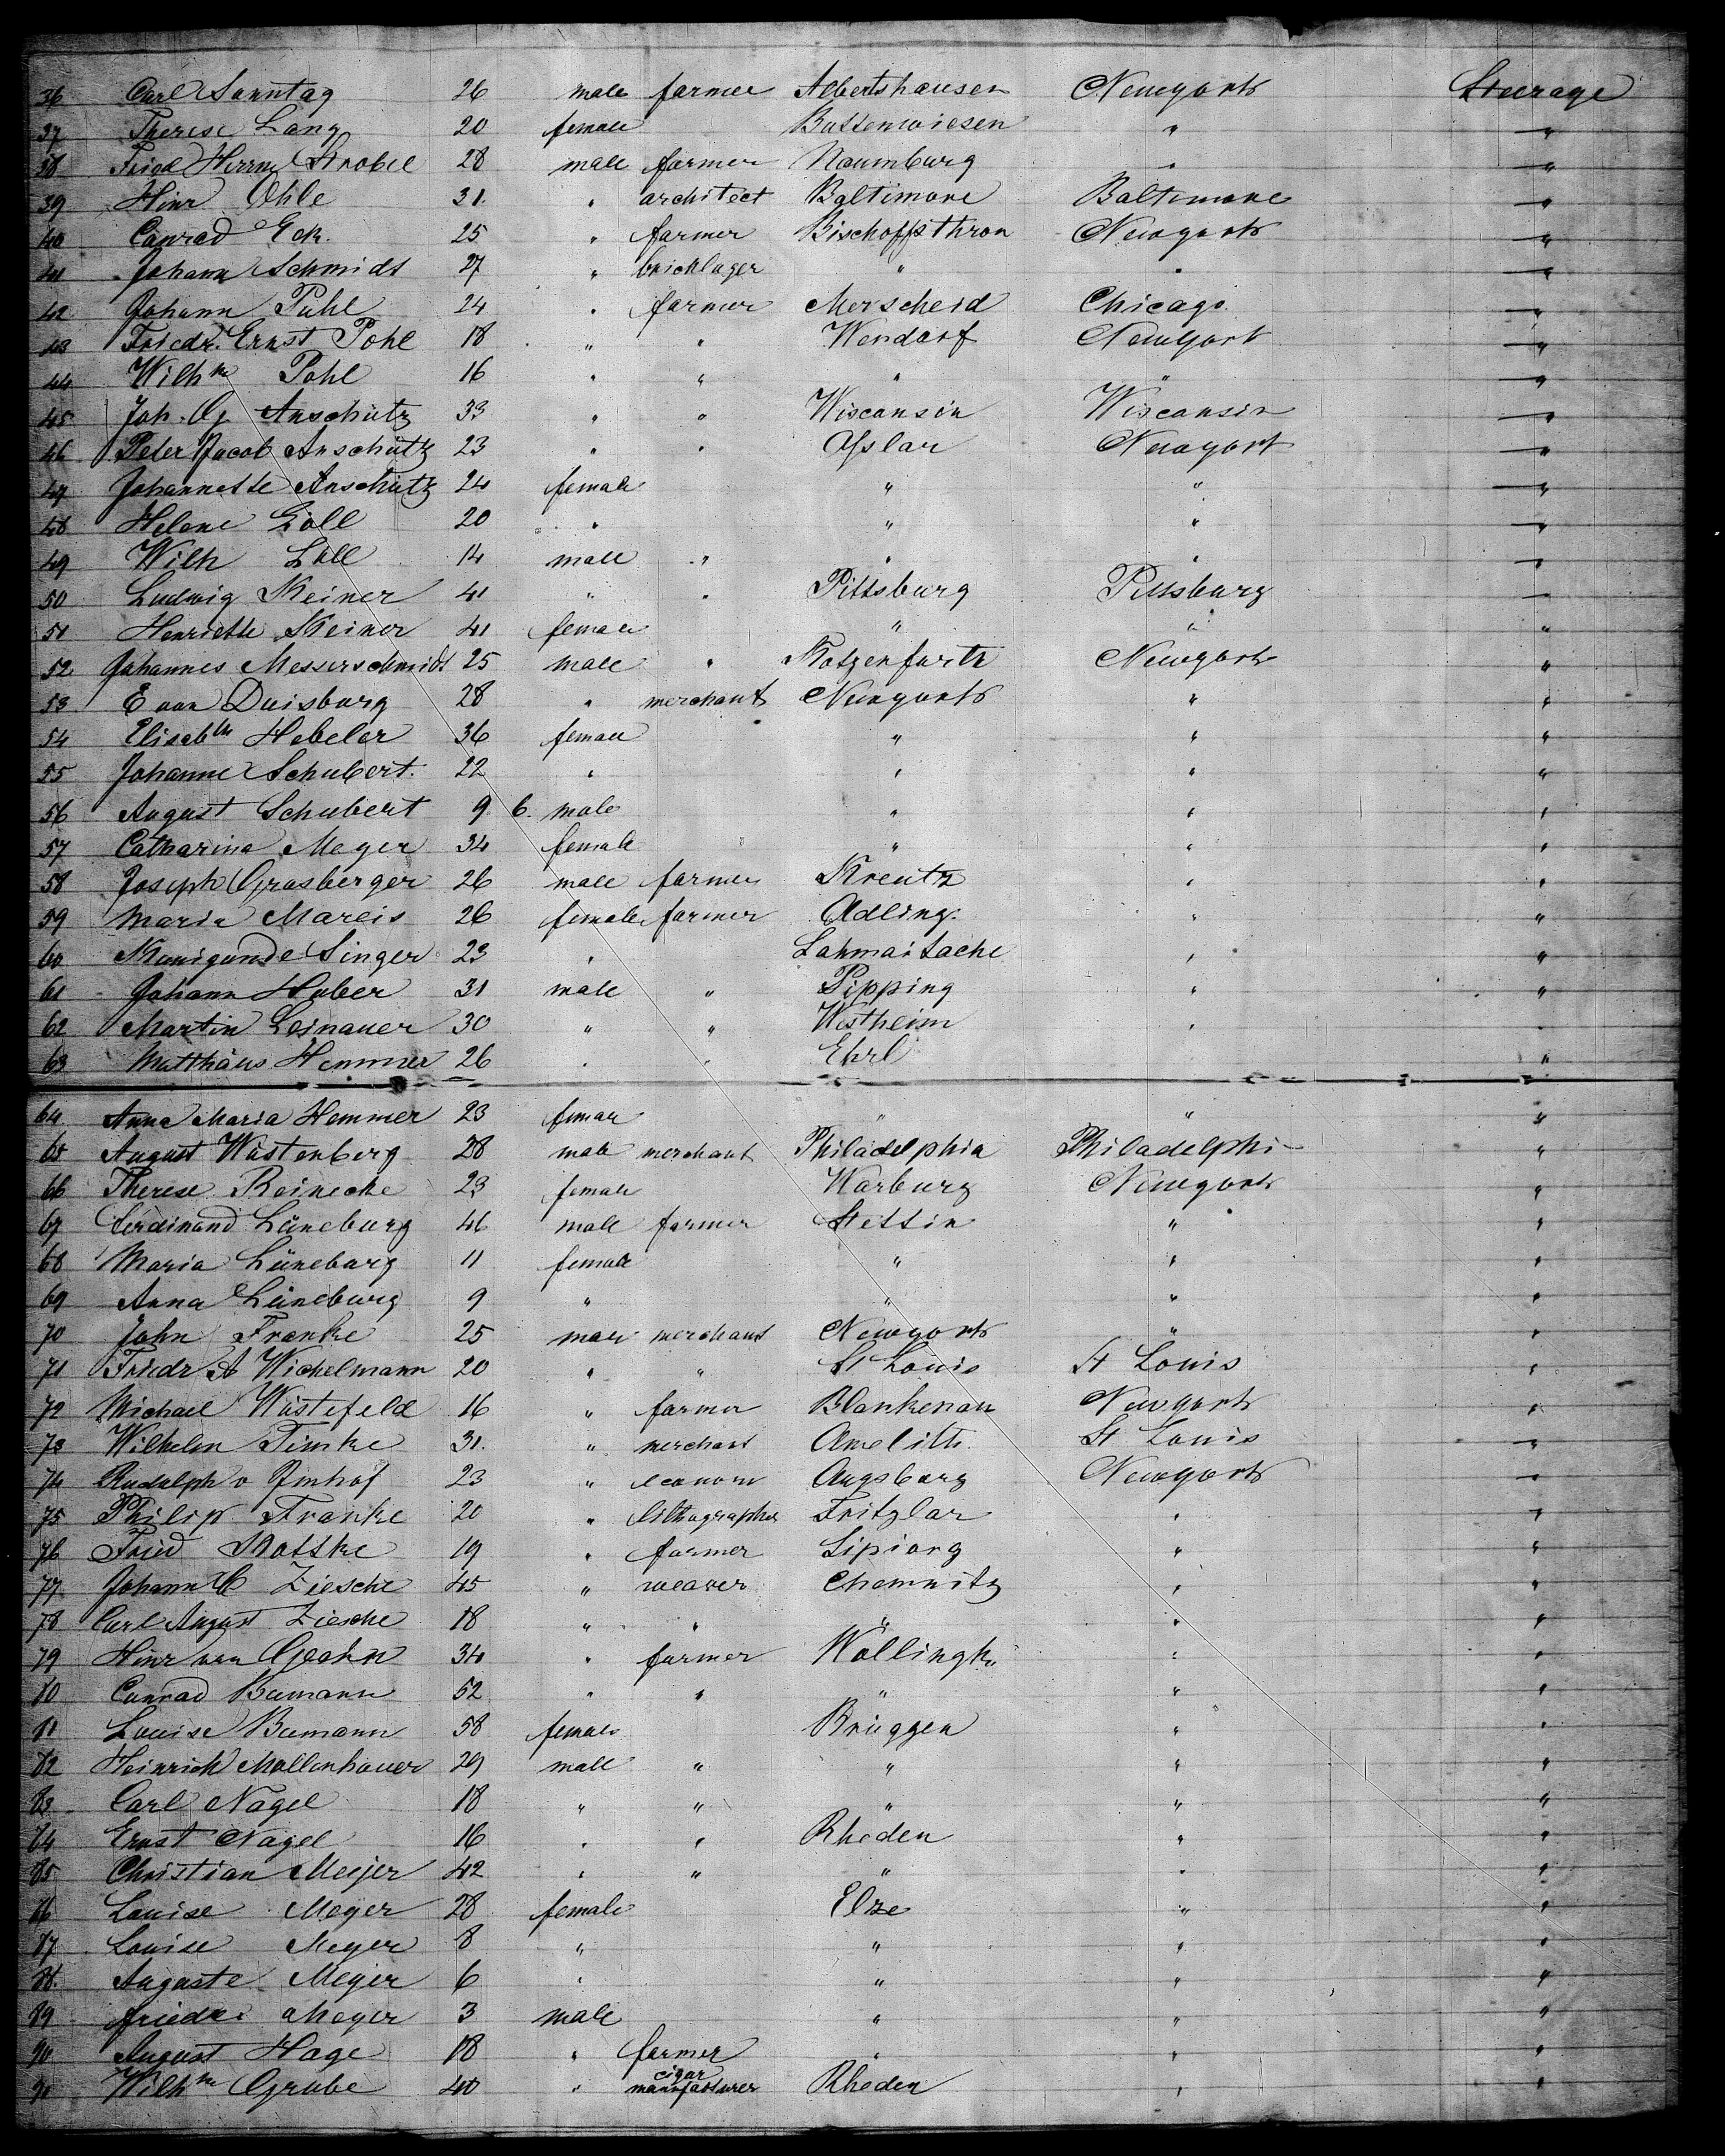 36 Carl Sonntag 26 male farmer Albertshausen Newyork Steerage
37 Therese Lang 20 female Buttenwiesen " "
38 Fried Herrm Strobel 28 male farmer Naumburg " "
39 Hinr Ohle 31. " architect Baltimore Baltimore "
40 Conrad Eck. 25 " farmer Bischoffsthron Newyork "
41 Johann Schmidt 27 " bricklayer " " "
42 Johann Puhl 24 " farmer Merscheid Chicago. "
43 Friedr. Ernst Pohl 18 " " Wendorf Newyork "
44 Wilhm Pohl 16 " " " " "
45 Joh. Gg Anschütz 33 " " Wisconsin Wisconsin "
46 Peter Jacob Anschütz 23 " " Asslar Newyork "
47 Johannette Anschütz 24 female " " "
48 Helene Löll 20 " " " "
49 Wilh Löll 14 male " " " "
50 Ludwig Keiner 41 " " Pittsburg Pittsburg "
51 Henriette Keiner 41 female " " "
52 Johannes Messerschmidt 25 male " Kotzenfurth Newyork "
53 E van Duisburg 28 " merchant Newyork " "
54 Elisabth Hebeler 36 female " " "
55 Johanne Schubert. 22 " " " "
56 August Schubert 9 6. male " " "
57 Catharina Meyer 34 female " " "
58 Joseph Grasberger 26 male farmer Kreutz " "
59 Maria Mareis 26 female farmer Adling. " "
60 Kunigunde Singer 23 " Lahmaitache " "
61 Johann Huber 31 male " Pipping " "
62 Martin Leinauer 30 " " Westheim " "
63 Matthäus Hemmer 26 " " Ehrl "
64 Anna Maria Hemmer 23 female " " "
65 August Wüstenberg 28 male merchant Philadelphia Philadelphi "
66 Therese Reinecke 23 female Warburg Newyork "
67 Ferdinand Lüneburg 46 male farmer Stettin " "
68 Maria Lüneburg 11 female " " "
69 Anna Lüneburg 9 " " " "
70 John Franke 25 male merchant Newyork " "
71 Friedr A Wichelmann 20 " " St Louis St Louis "
72 Michael Wüstefeld 16 " farmer Blankenau Newyork "
73 Wilhelm Timke 31. " merchant Amelith. St Louis "
74 Rudolph v Imhof 23 " econom Augsburg Newyork "
75 Philip Franke 20 " lithographer Fritzlar " "
76 Fried Kottke 19 " farmer Lipiorg " "
77 Johann C Ziesche 45 " weaver Chemnitz " "
78 Carl August Ziesche 18 " " " " "
79 Hinr van Geahn 34 " farmer Wollingh. " "
80 Conrad Bumann 52 " " " " "
81 Louise Bumann 58 female Brüggen " "
82 Heinrich Mollenhauer 29 male " " " "
83 Carl Nagel 18 " " " " "
84 Ernst Nagel 16 " " Rhoden " "
85 Christian Meijer 42 " " " " "
86 Louise Meyer 28 female Elze " "
87 Louise Meyer 8 " " " "
88. Auguste Meyer 6 " " " "
89 Friedr Meyer 3 male " " "
90 August Hage 18 " farmer " " "
91 Wilhm Grube 40 " cigar manufacturer Rhoden " "